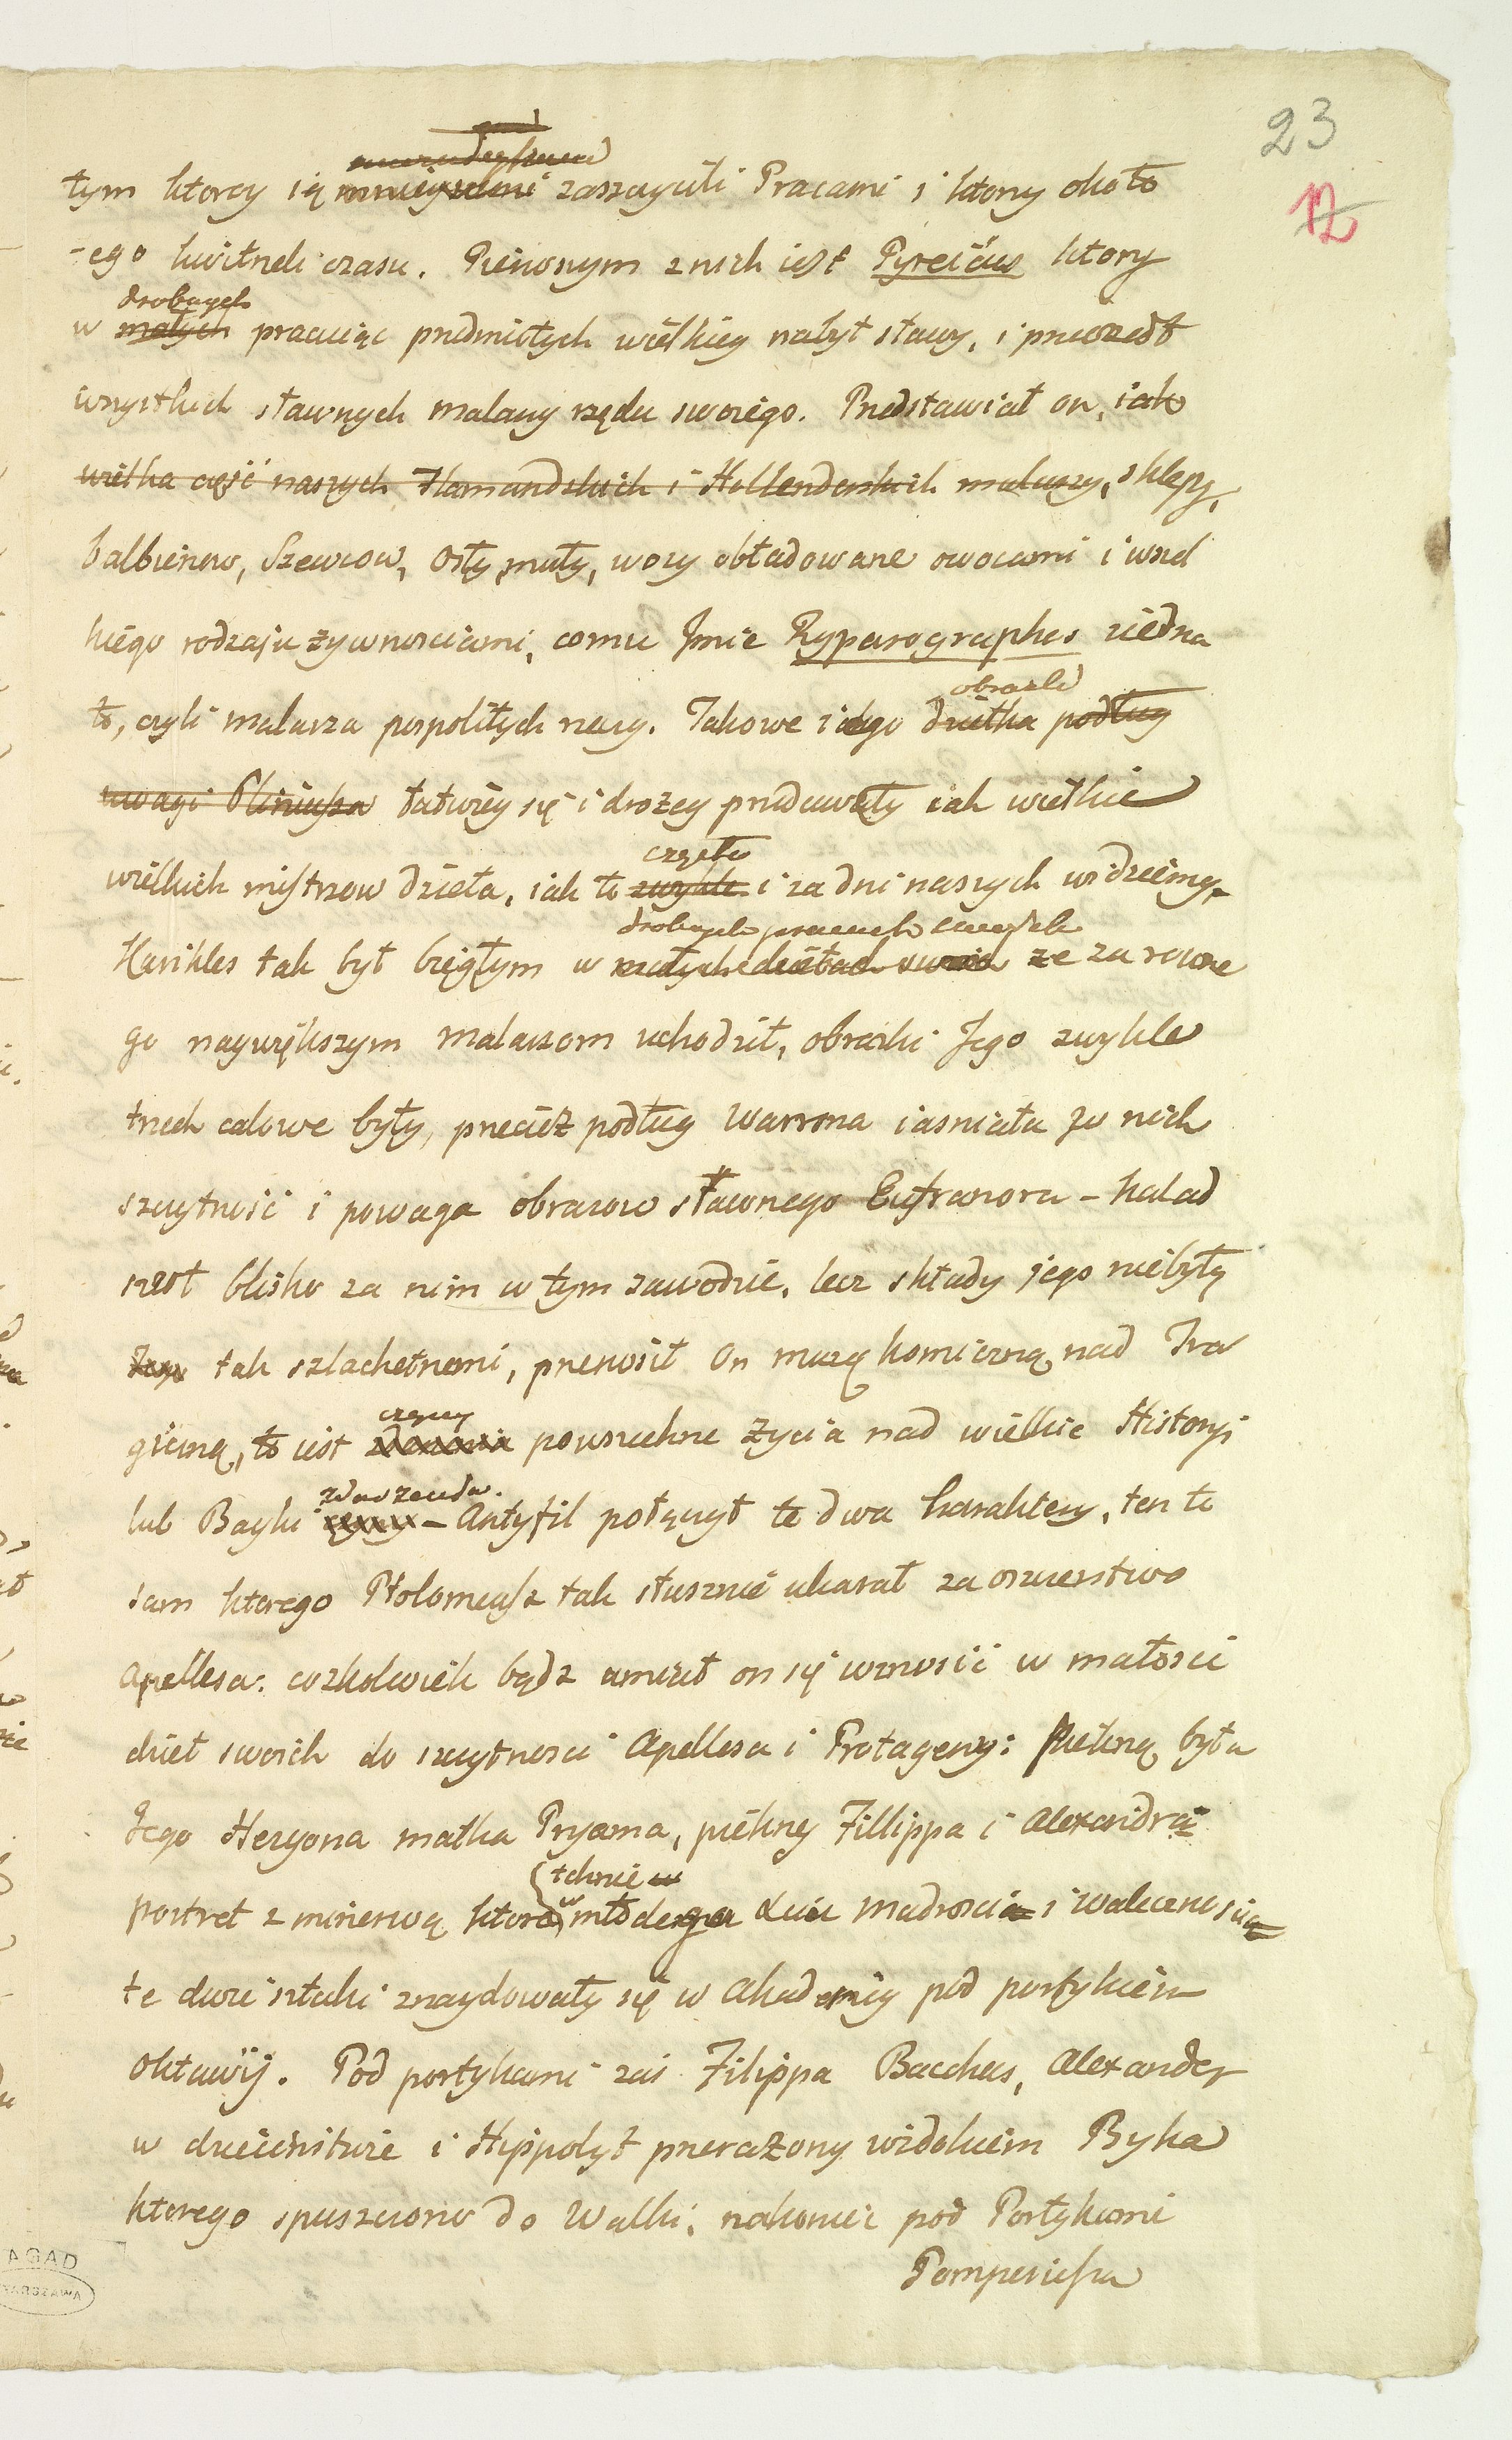 23
12
tym ktorzy się mnieyszemi zaszczycili Pracami i ktorzy około
-ego kwitneli czasu. Pierwszym z nich iest Pyreicus ktory
drobnych
w małych pracuiąc przedmiotych wielkiey nabył sławy, i przeszedł
wszystkich sławnych malarzy rzędu swoiego. Przedstawiał on, iak
wielka część naszych Flamandzkich i Hollenderskich malarzy, sklepy,
balbierow, Szewcow, Osły, muły, wozy obładowane owocami i wszel
kiego rodzaju żywnosciami, co mu Imie Ryparographes ziedna
obrazki
ło, czyli malarza pospolitych rzeczy. Takowe iego dziełka podług
uwagi Pliniusza łatwiey się i drożey przedawały iak wielkie
często
wielkich mistrzow dzieła, iak to zwykle i za dni naszych widziemy.
drobnych pracach
Karikles tak był biegłym w małych dziełach że za rowne
go naywiększym malarzom uchodził, obrazki Jego zwykle
trzech calowe były, przecież podług Warrona iasniała w nich
szczytność i powaga obrazow sławnego Eufranora - Kalad
szedł blisko za nim w tym zawodzie, lecz składy jego niebyły
tak szlachetnemi, przenosił On muzę komiczną nad Tra
czyny
giczną, to iest powszechne życia nad wielkie Historyi
zdarzenia.
lub Bayki czyny - Antyfil połączył te dwa charaktery, ten to
sam ktorego Ptolomeusz tak słusznie ukarał za oszczerstwo
Apellesa: cozkolwiek bądz umiał on się wznosić w małosci
dzieł swoich do szczytnosci Apellesa i Protageny: Piekną była
Jego Hezyona matka Pryama, piękny Fillippa i Alexandra
tchnie w
portret z minerwą ktora w młodego duie madroscią i walecznoscią
te dwie sztuki znaydowały się w Akademiy pod portykiem
Oktawij. Pod portykami zaś Filippa Bacchus, Alexander
w dzieciństwie i Hippolyt przerażony widokiem Byka
ktorego spuszczono do Walki, nakoniec pod Portykami
Pompeiusza
AGAD
WARSZAWA